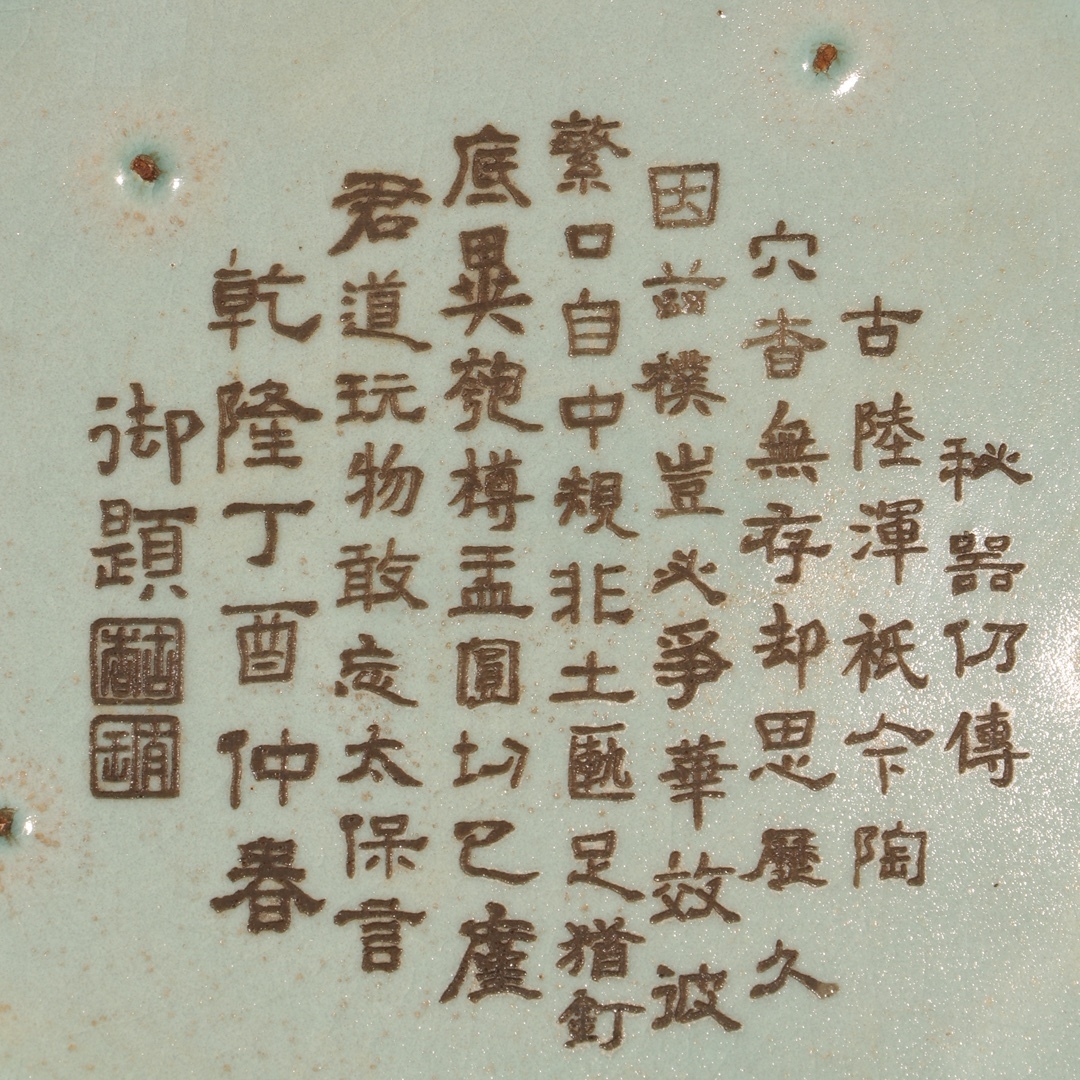 秘器仍傳
古陸渾祇今陶
穴杳無存却思歷久
因茲樸豈必爭華效彼
繁口自中規非土匭足猶釘
底異匏樽盂圓切已廑
君道玩物敢忘太保言
乾隆丁酉仲春
御題